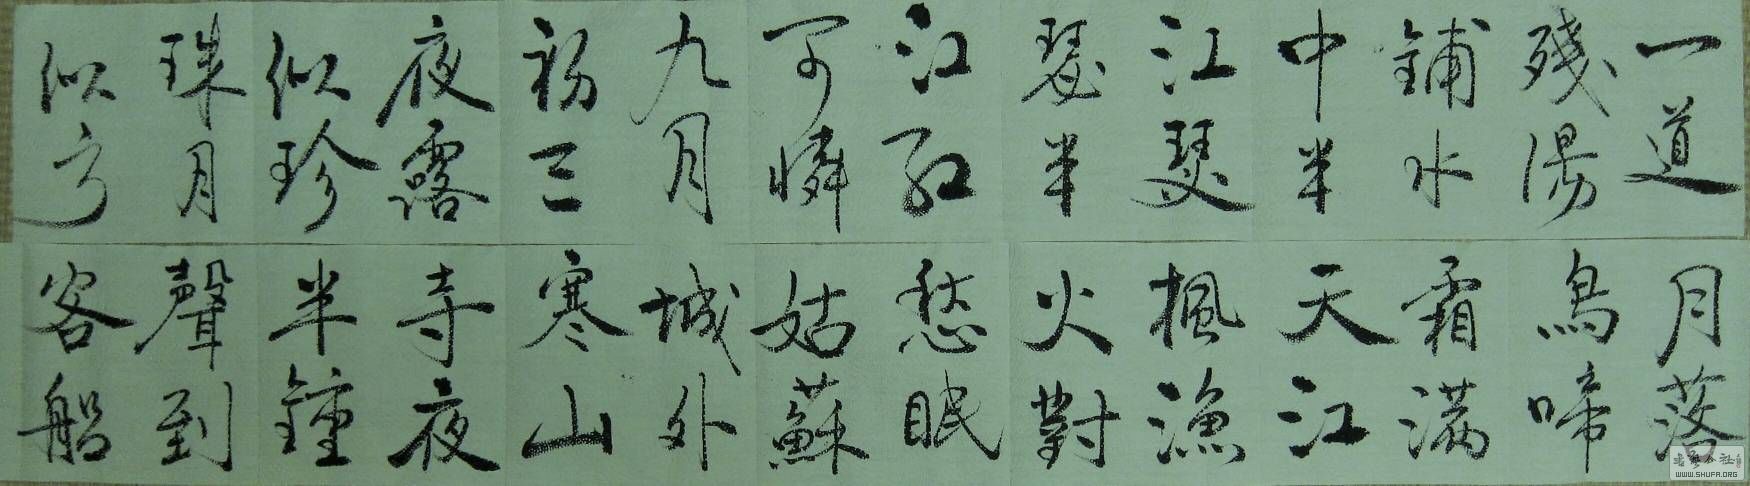 一道
殘陽
鋪水
中半
江瑟
瑟半
江紅
可憐
九月
初三
夜露
似珍
珠月
似弓
月落
烏啼
霜滿
天江
楓漁
火對
愁眠
姑蘇
城外
寒山
寺夜
半鍾
聲到
客船
WWW.SHUFA.ORG